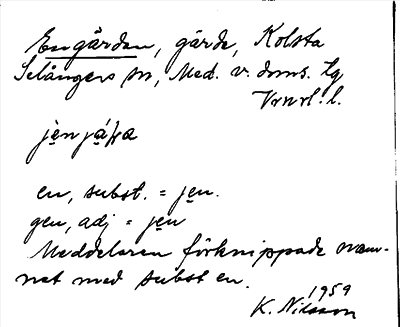 Engården, gärde, Kolsta
Selångers sn, Med. v. doms. tg
Vrnrl. l.
en, subst. = jen.
gen, adj = jen
Meddelaren förknippade nam-
net med subst en.
1959
K. Nilsson